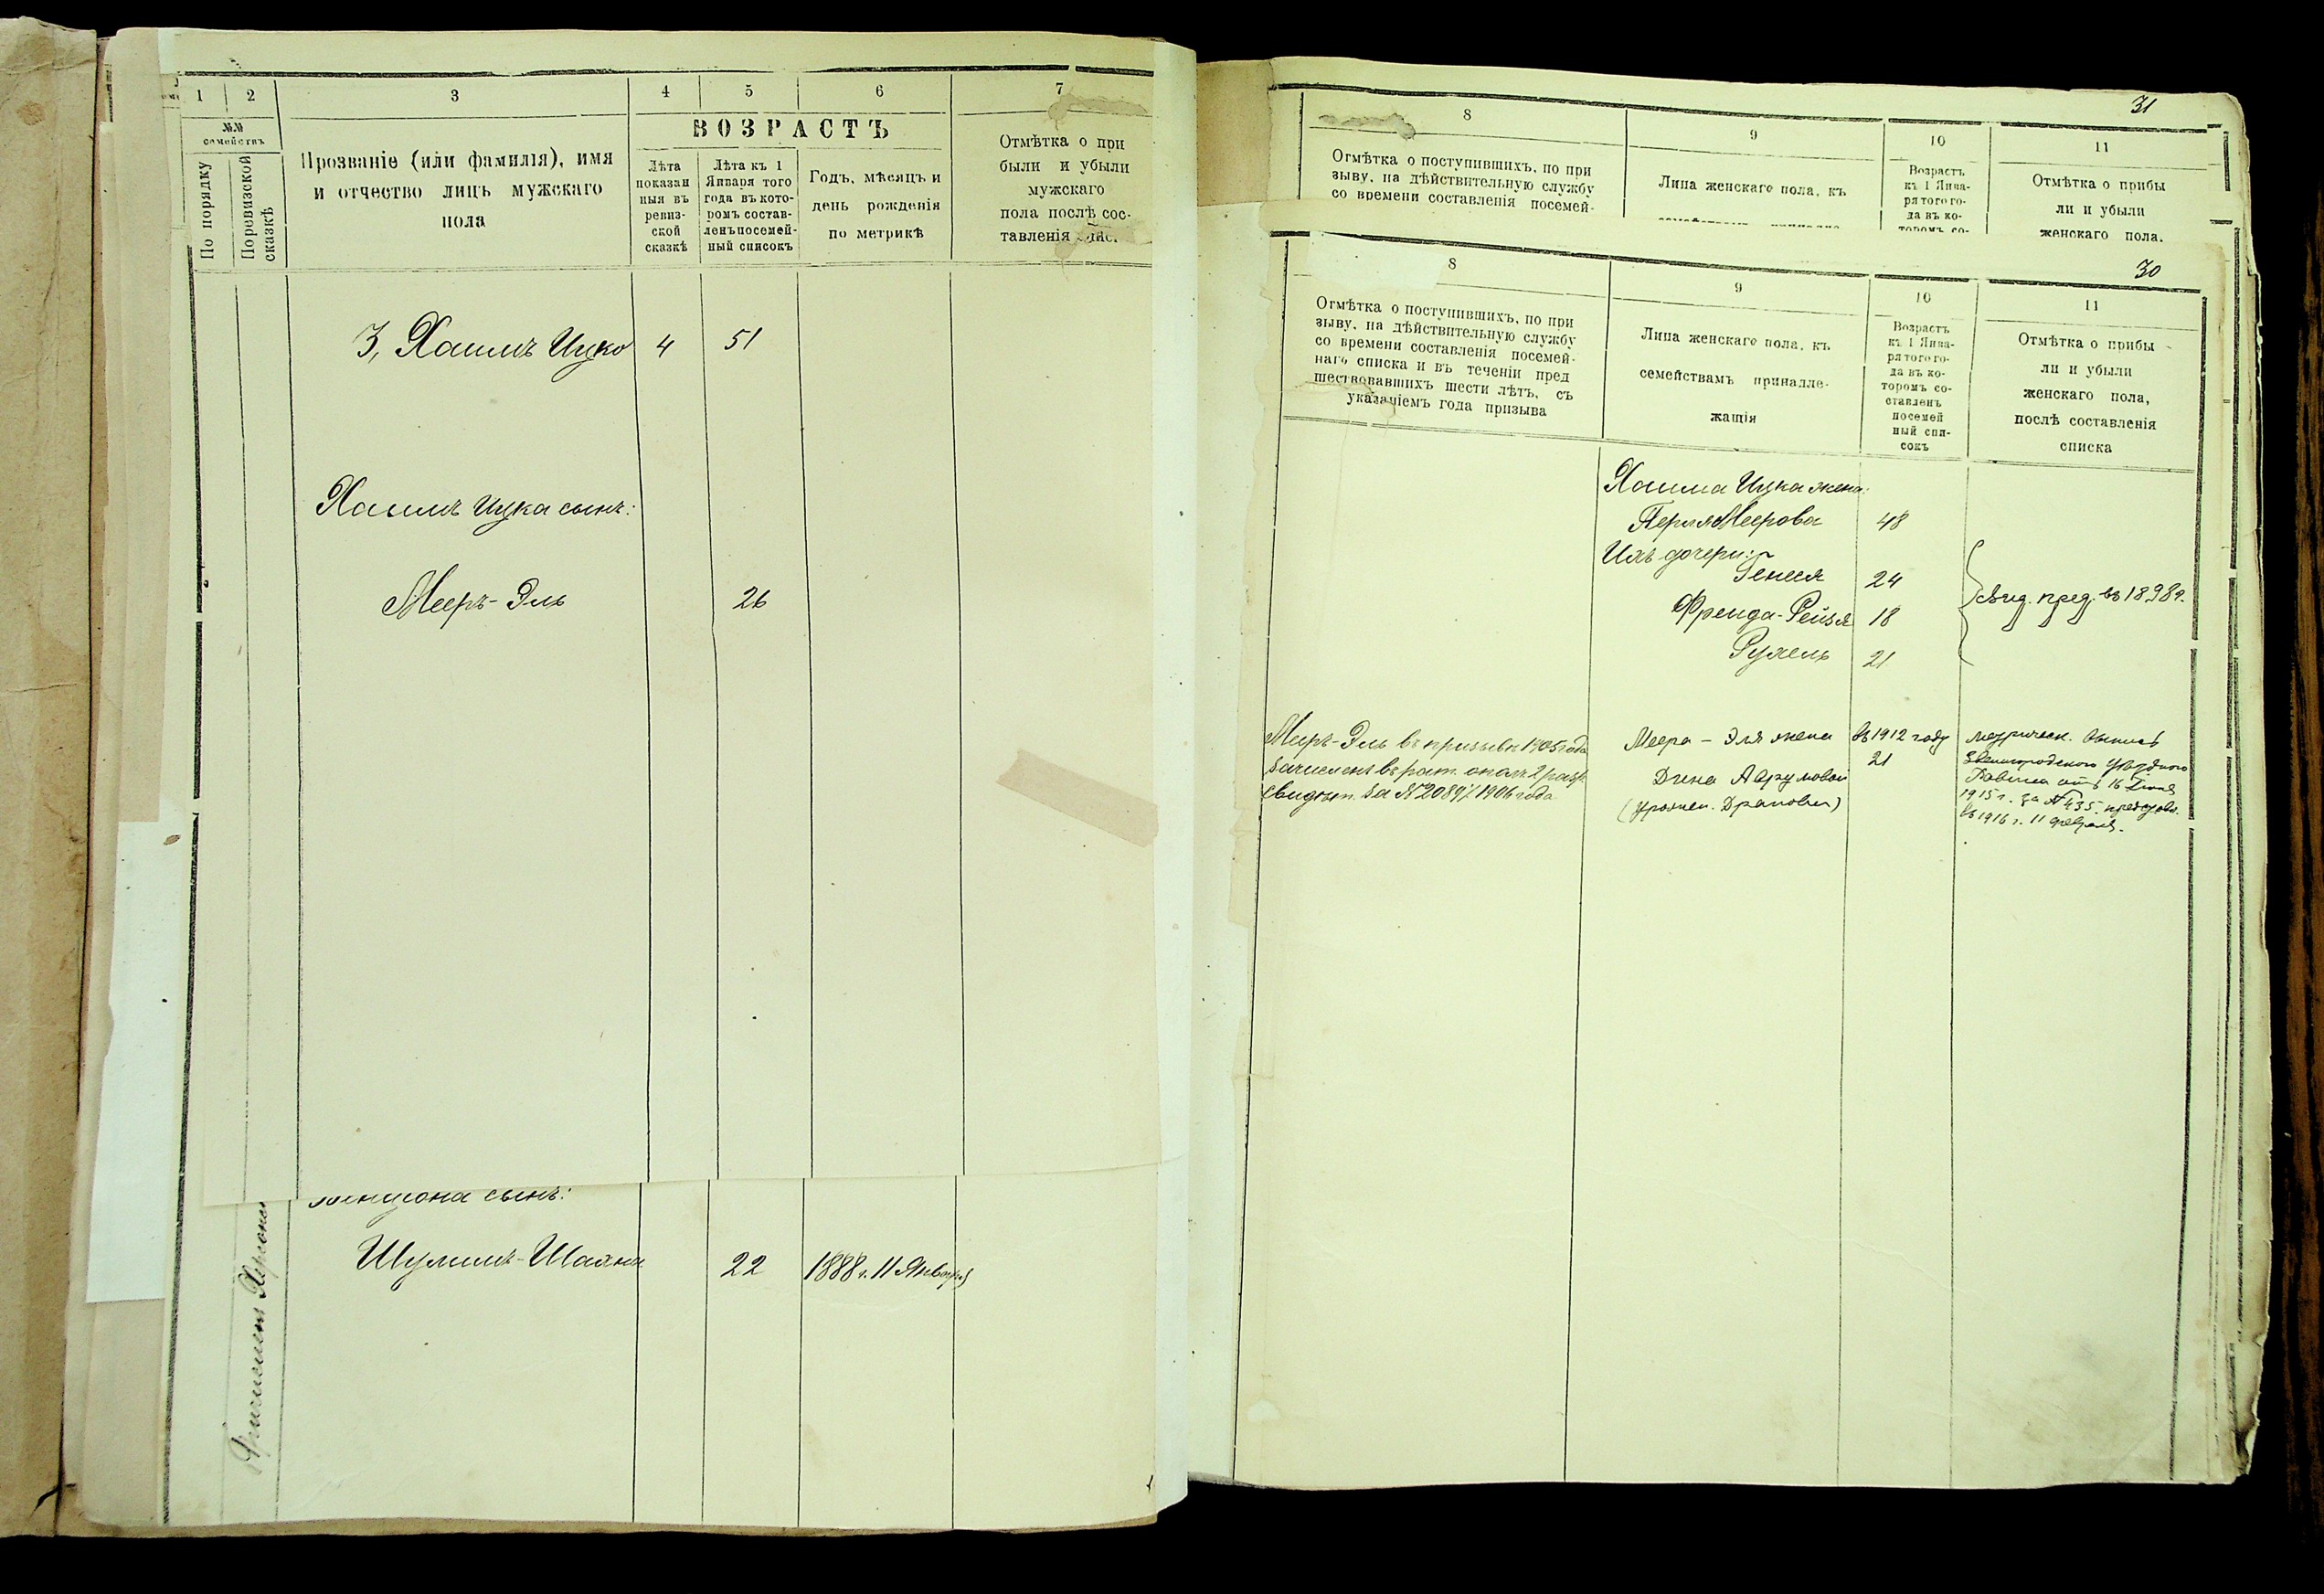 1
2
3
4
5
6
7
№№
семействъ
По порядку
Поревизской
сказкѣ
Прозваніе (или фамилія), имя
и отчество лицъ мужскаго
пола
ВОЗРАСТЪ
Лѣта
показан
ныя въ
ревиз-
ской
сказкѣ
Лѣта къ 1
Января того
года въ кото-
ромъ состав-
ленъ посемей-
ный списокъ
Годъ, мѣсяцъ и
день рожденія
по метрикѣ
Отмѣтка о при
были и убыли
мужскаго
пола послѣ сос-
тавленія
3, Хаимъ Ицко 4 51
Хаимъ Ицка сынъ:
Мееръ-Эль 26
сынъ:
Шулимъ-Шаяна 22 1888 г. 11 Января
31
8
9
10
11
Отмѣтка о поступившихъ, по при
зыву, на дѣйствительную службу
со времени составленія посемей-
Лица женскаго пола, къ
Возрастъ
къ 1 Янва-
ря того го-
да въ ко-
торомъ со-
Отмѣтка о прибы
ли и убыли
женскаго пола,
30
8
9
10
11
Отмѣтка о поступившихъ, по при
зыву, на дѣйствительную службу
со времени составленія посемей-
наго списка и въ теченіи пред
шествовавшихъ шести лѣтъ, съ
указаніемъ года призыва
Лица женскаго пола, къ
семействамъ принадле-
жащія
Возрастъ
къ 1 Янва-
ря того го-
да въ ко-
торомъ со-
ставленъ
посемей
ный спи-
сокъ
Отмѣтка о прибы
ли и убыли
женскаго пола,
послѣ составленія
списка
Хаима Ицка жена:
Перля Меерова 48
Ихъ дочери:
Генеся 24
Фрейда-Рейзя 18
Рухель 21
свид. пред. въ 1898 г.
Мееръ-Эль въ призывѣ 1905 года
зачисленъ въ рат. опол. 2 разр.
свидѣт. за № 2089/ 1906 года
Меера - Эля жена
Дина Аврумовой
въ 1912 году
21
метрическ. выпись
Звенигородского Уѣздного
Равина отъ 16 Іюня
1915 г. за № 435. представл.
въ 1916 г. 11 февраля.